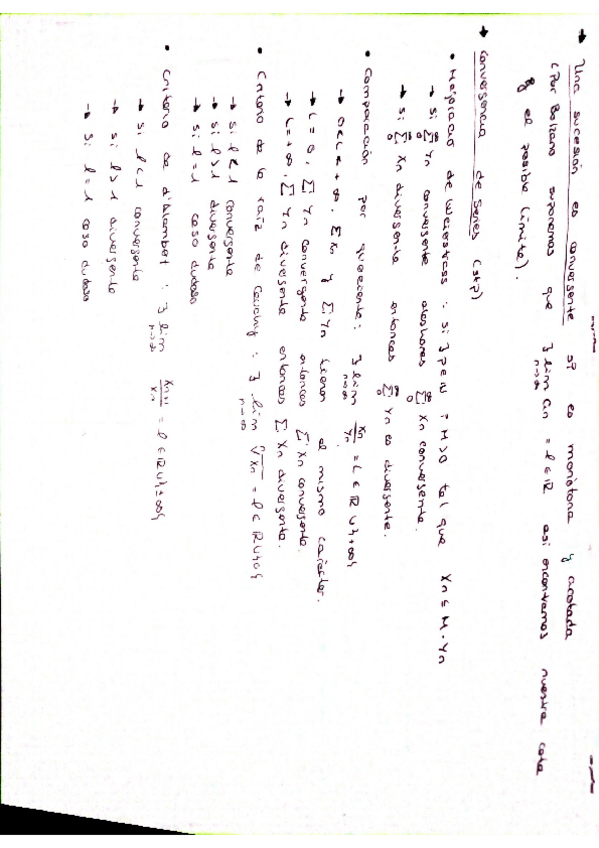 → Una sucesión es convergente si es monótona y acotada
(Por Bolzano suponemos que ∃ lim an = l ∈ ℝ así encontramos nuestra cota
n→∞
y el posible límite).
→ Convergencia de series (st?)
• Mayoración de Weierstrass : Si ∃ p ∈ ℕ , M>0 tal que Xn ≤ M · Yn
→ Si ∑ Yn convergente entonces ∑ Xn convergente.
→ Si ∑ Xn divergente entonces ∑ Yn es divergente.
• Comparación por cociente: ∃ lim Xn/Yn = L ∈ ℝ ∪ {+∞}
n→∞
→ 0<L<+∞. ∑ Xn y ∑ Yn tienen el mismo carácter.
→ L = 0, ∑ Yn convergente entonces ∑ Xn convergente.
→ L = +∞, ∑ Yn divergente entonces ∑ Xn divergente.
• Criterio de la raíz de Cauchy : ∃ lim ⁿ√Xn = l ∈ ℝ ∪ {+∞}
n→∞
→ Si l < 1 convergente
→ Si l > 1 divergente
→ Si l = 1 caso dudoso
• Criterio de d'Alambet : ∃ lim Xn+1/Xn = l ∈ ℝ ∪ {±∞}
n→∞
→ Si l < 1 convergente
→ Si l > 1 divergente
→ Si l = 1 caso dudoso